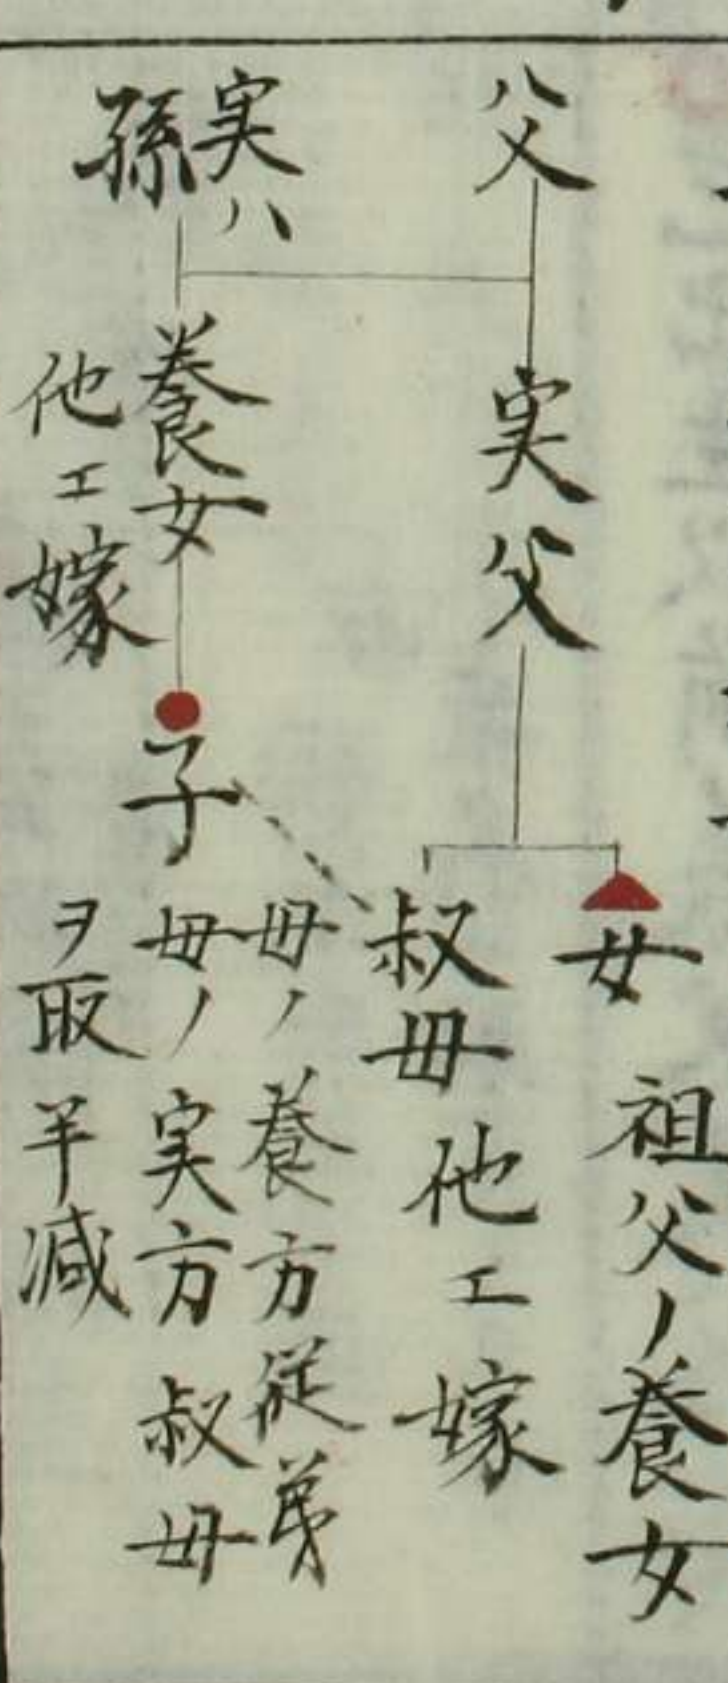 父
実父
女
祖父ノ養女
叔母
他エ嫁
実ハ
孫
養女
他エ嫁
子
母ノ養方従弟
母ノ実方叔母
ヲ取半減